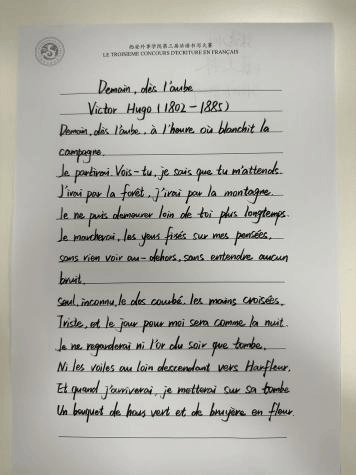 西安外事学院第三届法语书写大赛
LE TROISIEME CONCOURS D'ECRITURE EN FRANÇAIS
Demain, dès l'aube
Victor Hugo (1802-1885)
Demain, dès l'aube, à l'heure où blanchit la
campagne.
Je partirai. Vois-tu, je sais que tu m'attends.
J'irai par la forêt, j'irai par la montagne.
Je ne puis demeurer loin de toi plus longtemps.
Je marcherai, les yeus fixés sur mes pensées,
sans rien voir au-dehors, sans entendre aucun
bruit.
Seul, inconnu, le dos courbé, les mains croisées,
Triste, et le jour pour moi sera comme la nuit.
Je ne regarderai ni l'or du soir que tombe,
Ni les voiles au loin descendant vers Harfleur,
Et quand j'arriverai, je metterai sur sa tombe
Un bouquet de hous vert et de bruyère en fleur.